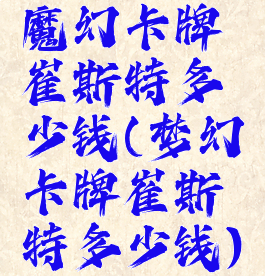 魔幻卡牌
崔斯特多
少钱(梦幻
卡牌崔斯
特多少钱)